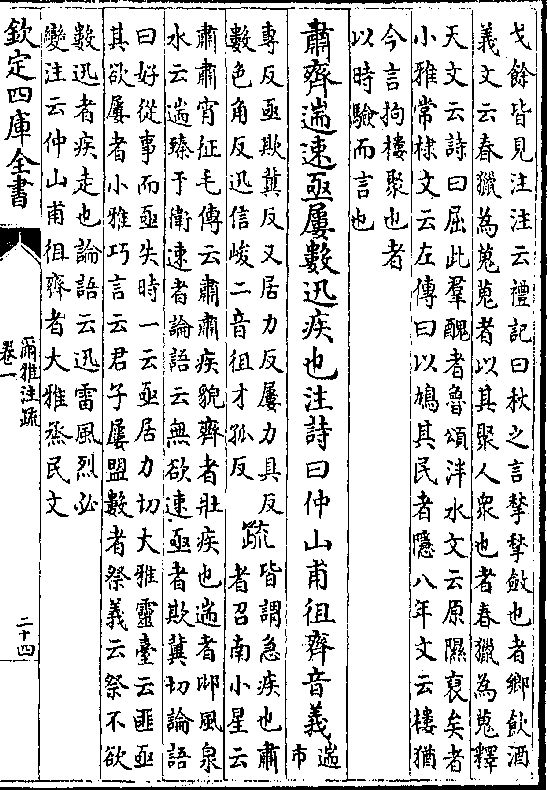 戈餘皆見注注云禮記曰秋之言揫揫斂也者鄉飲酒
義文云春獵為蒐蒐者以其聚人衆也者春獵為蒐釋
天文云詩曰屈此羣醜者魯頌泮水文云原隰裒矣者
小雅常棣文云左傳曰以鳩其民者隱八年文云樓猶
今言拘樓聚也者
以時驗而言也
肅齊遄速亟屢數迅疾也注詩曰仲山甫徂齊音義
遄
市
專反亟欺冀反又居力反屢力具反
數色角反迅信峻二音徂才孤反
疏
皆謂急疾也肅
者召南小星云
肅肅宵征毛傳云肅肅疾貌齊者壯疾也遄者邶風泉
水云遄臻于衛速者論語云無欲速亟者欺冀切論語
曰好從事而亟失時一云亟居力切大雅靈臺云匪亟
其欲屢者小雅巧言云君子屢盟數者祭義云祭不欲
數迅者疾走也論語云迅雷風烈必
變注云仲山甫徂齊者大雅烝民文
欽定四庫全書
爾雅注疏
卷一
二十四